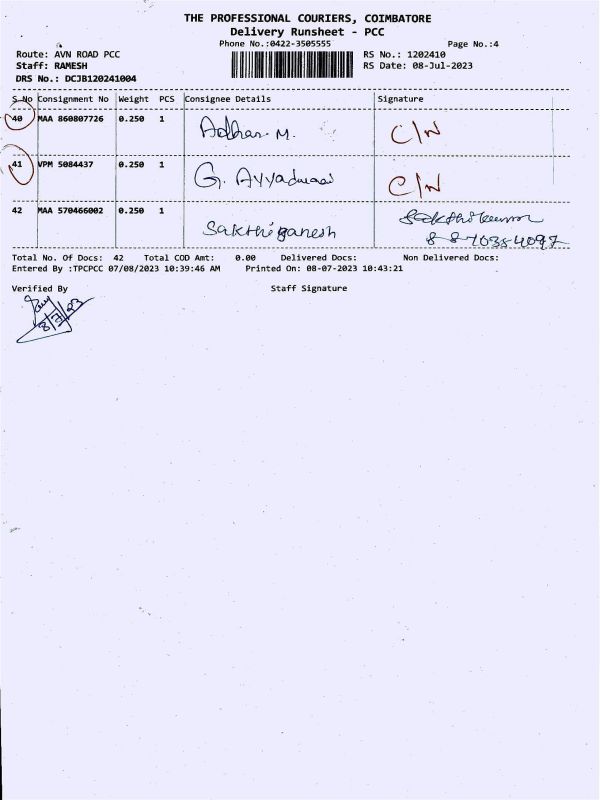 THE PROFESSIONAL COURIERS, COIMBATORE
Delivery Runsheet - PCC
Phone No.:0422-3505555 Page No.:4
Route: AVN ROAD PCC RS No.: 1202410
Staff: RAMESH RS Date: 08-Jul-2023
DRS No.: DCJB120241004
S.No Consignment No Weight PCS Consignee Details Signature
40 MAA 860807726 0.250 1 Adhan M. C/N
41 VPM 5084437 0.250 1 G. Ayyadurai C/N
42 MAA 570466002 0.250 1 Sakthiganesh
Total No. Of Docs: 42 Total COD Amt: 0.00 Delivered Docs: Non Delivered Docs:
Entered By :TPCPCC 07/08/2023 10:39:46 AM Printed On: 08-07-2023 10:43:21
Verified By Staff Signature
8/7/23